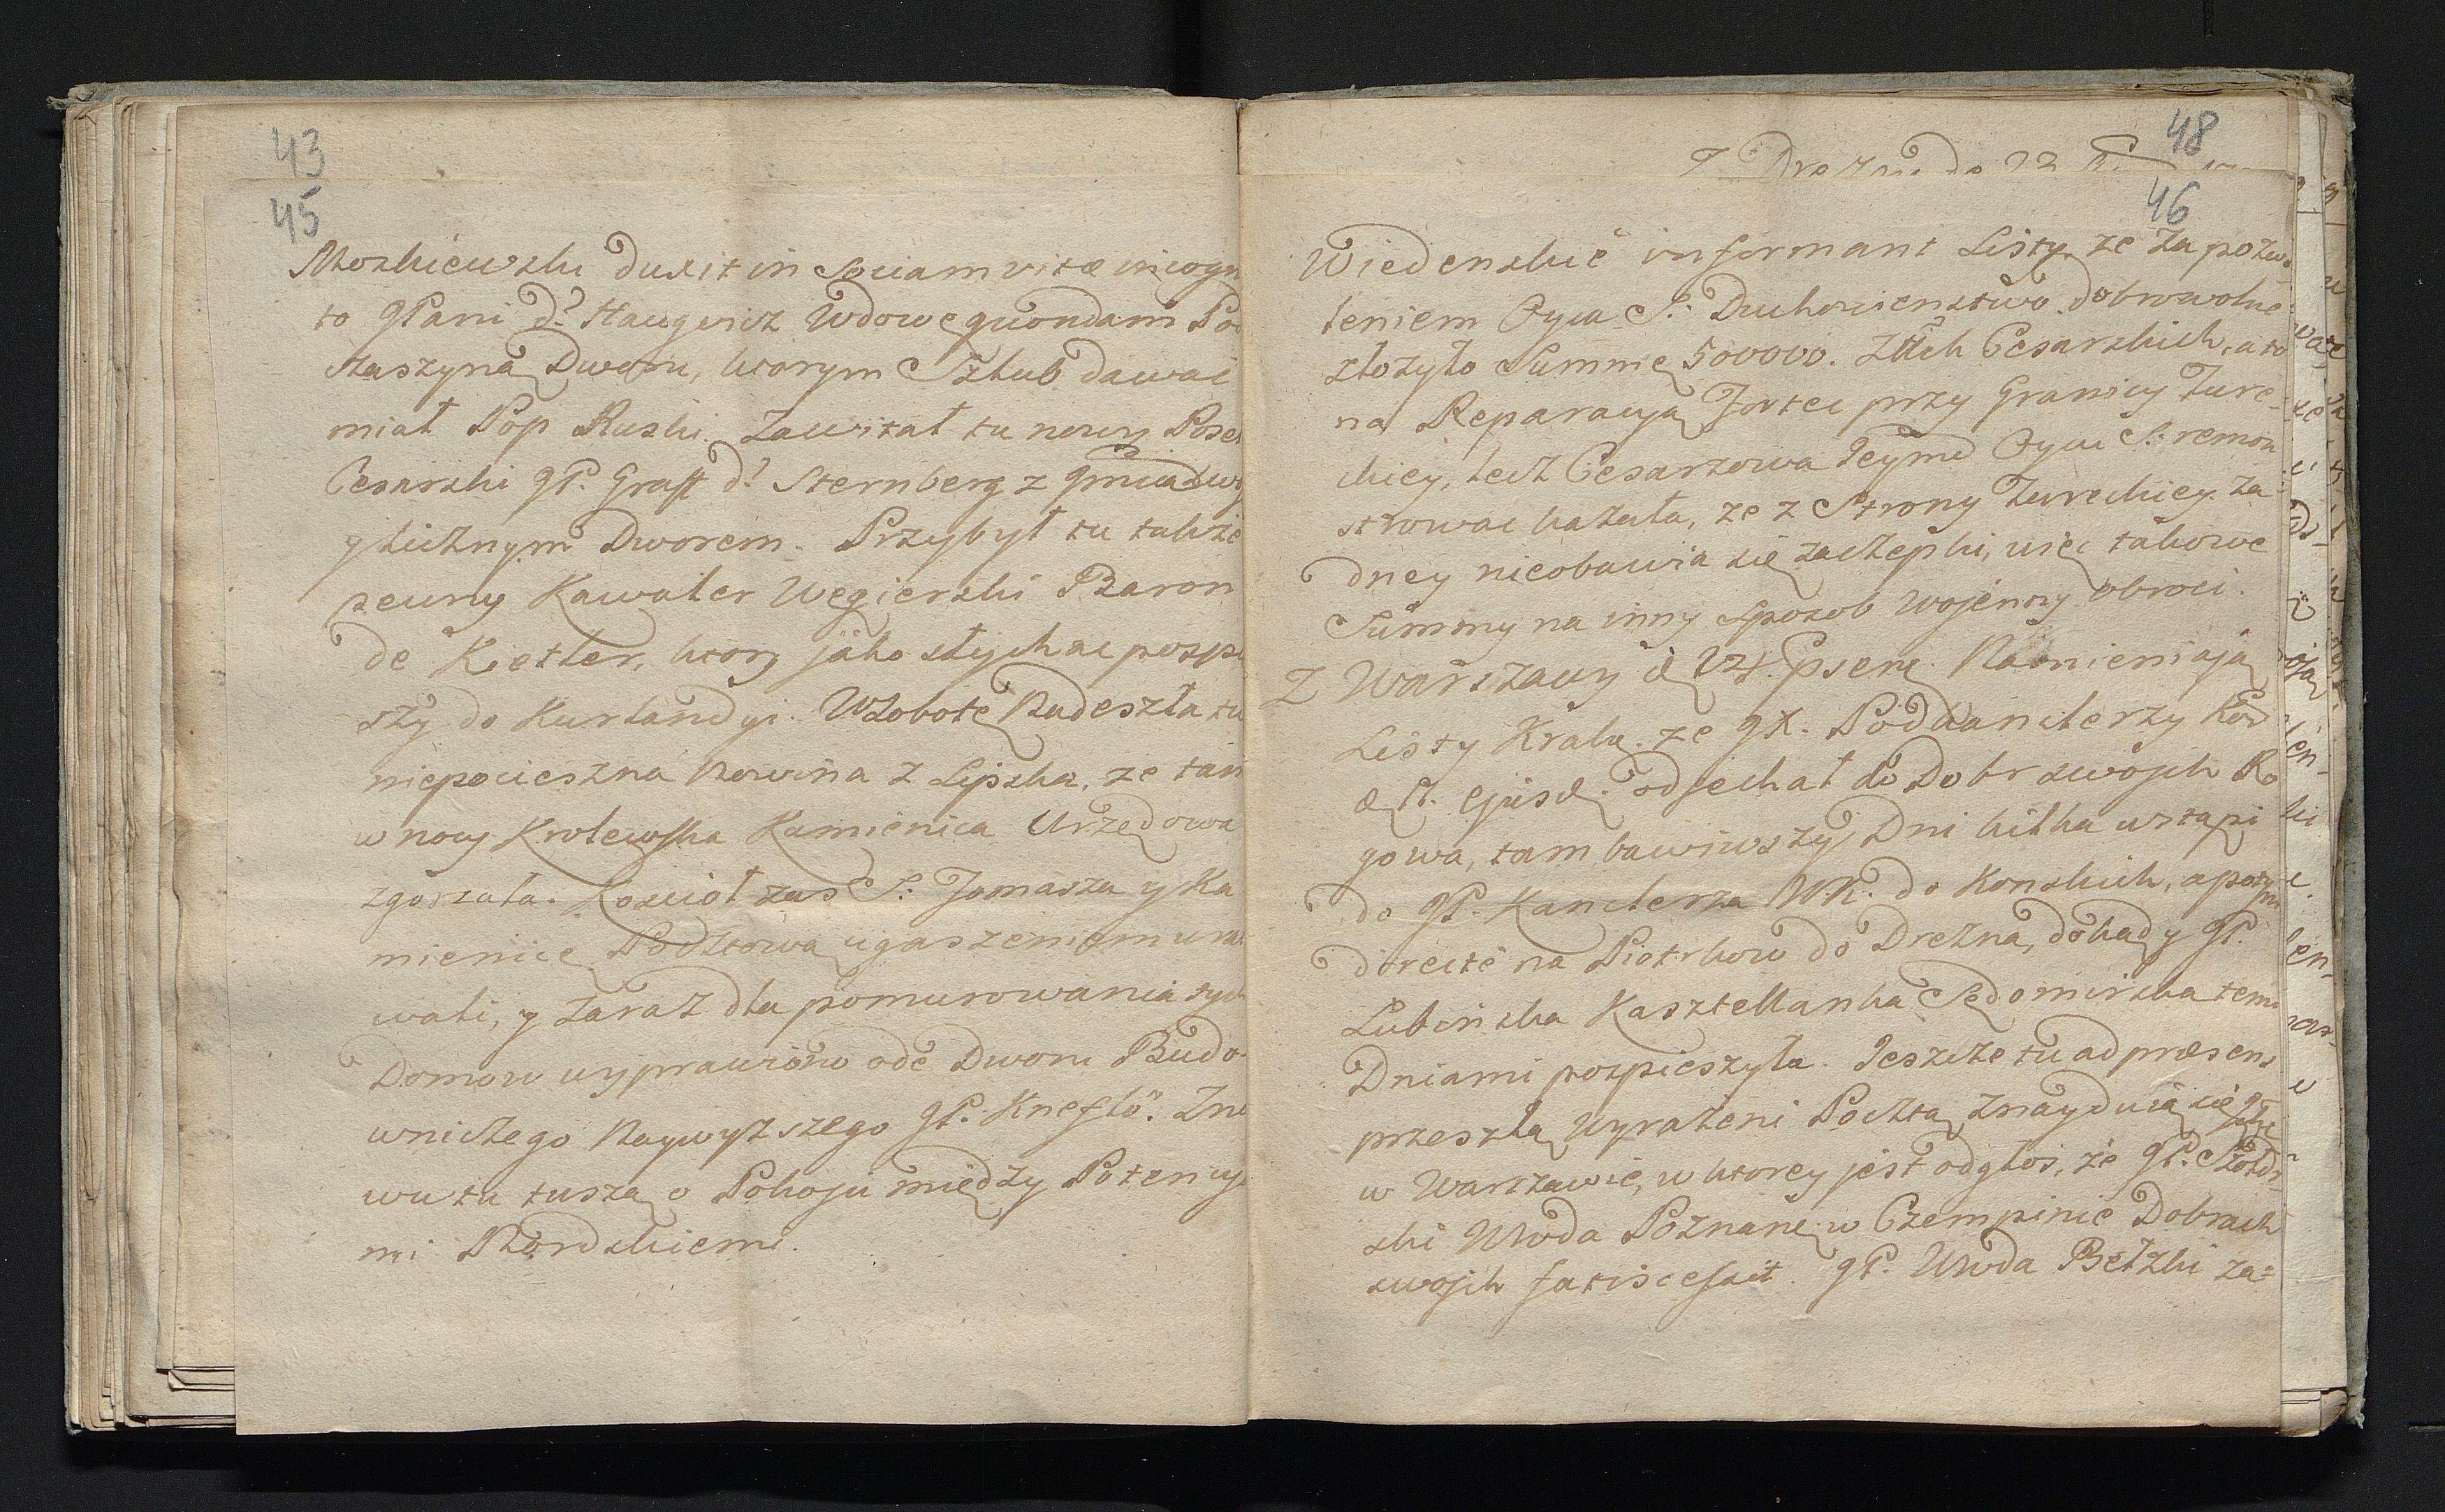 43
45
Moskiewski duxit in Sociam vitæ incogn
to JPani d. Haugwicz Wdowę quondam Po
staszyną Dworu, ktorym Szlub dawać
miał Pop Ruski. Zawitał tu nowy Posel
Cesarski JP. Graff d. Sternberg z
y licznym Dworem. Przybył tu także
pewny Kawaler Węgierski Baron
de Ketler, ktory jako słychac pospi
szy do Kurlandyi. W Sobotę Nadeszła tu
niepocieszna Nowina z Lipska, ze tam
w nocy Krolewska Kamienica Urzędowa
zgorzała. Koscioł zas S. Tomasza y Ka
mienicę Podltową ugaszeniem urat
wali, y zaraz dla pomurowania tych
Domow wyprawiono ode Dworu Budo
wniczego Naywyższego JP. Knefla. Zno
wu tu tuszą o Pokoju między Potencya
mi Nordskiemi.
48
Z Drezna de 22
46
Wiedenskie informant Listy, ze za pozwo
leniem Oyca S. Duchowienstwo dobrowolne
złożyło Summę 500000. Złłch Cesarskich, a to
na Reparacyą Fortec przy Granicy Ture
ckiey, lecz Cesarzowa Jeymć Oycu S. remon
strowac kazała, ze z Strony Tureckiey ża
dney nieobawia się zaczepki, więc takowe
Summy na inny sposob Wojenny obroci.
Z Warszawy d. 27. Psent. Namieniają
Listy Kralu. ze JX. Podkanclerzy Kor
& JP. ejusd. odjechał do Dobr swojch Ro
gowa, tam bawiwszy Dni kilka ustąpi
do JP. Kanclerza WK. do Konskich, a potym
directe na Piotrkow do Drezna, dokąd y JP.
Lubinska Kasztellanka Sędomirska temi
Dniami pospieszyła. Jeszcze tu ad præsens
przeszłą wyrażeni Pocztą znaydują się Jchć
w Warszawie, w ktorey jest odgłos, że JP. Szołdr
ski Wwoda Poznanẽ w Czempinie Dobrach
swojch fatis cessit. JP. Wwoda Bełzki za=